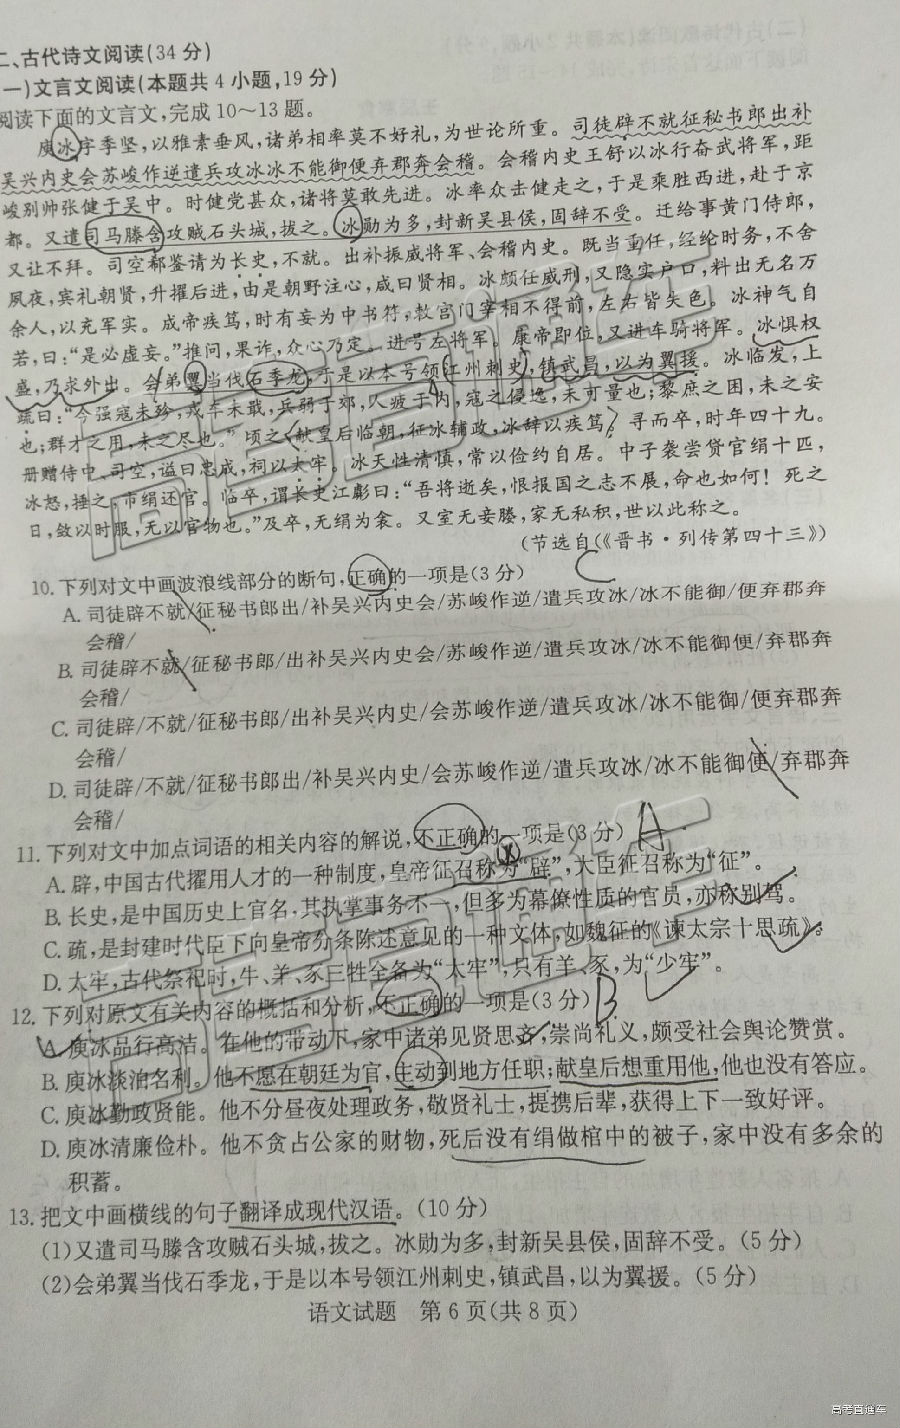 二、古代诗文阅读(34分)
(一)文言文阅读(本题共4小题,19分)
阅读下面的文言文,完成10～13题。
庾冰字季坚,以雅素垂风,诸弟相率莫不好礼,为世论所重。司徒辟不就征秘书郎出补
吴兴内史会苏峻作逆遣兵攻冰冰不能御便弃郡奔会稽。会稽内史王舒以冰行奋武将军,距
峻别帅张健于吴中。时健党甚众,诸将莫敢先进。冰率众击健走之,于是乘胜西进,赴于京
都。又遣司马滕含攻贼石头城,拔之。冰勋为多,封新吴县侯,固辞不受。迁给事黄门侍郎,
又让不拜。司空郗鉴请为长史,不就。出补振威将军、会稽内史。既当重任,经纶时务,不舍
夙夜,宾礼朝贤,升擢后进,由是朝野注心,咸曰贤相。冰颇任威刑,又隐实户口,料出无名万
余人,以充军实。成帝疾笃,时有妄为中书符,敕宫门宰相不得前,左右皆失色。冰神气自
若,曰:“是必虚妄。”推问,果诈,众心乃定。进号左将军。康帝即位,又进车骑将军。冰惧权
盛,乃求外出。会弟翼当伐石季龙,于是以本号领江州刺史,镇武昌,以为翼援。冰临发,上
疏曰:“今强寇未殄,戎车未戢,兵弱于郊,人疲于内,寇之侵逸,未可量也;黎庶之困,未之安
也;群才之用,未之尽也。”顷之,献皇后临朝,征冰辅政,冰辞以疾笃。寻而卒,时年四十九。
册赠侍中、司空,谥曰忠成,祠以太牢。冰天性清慎,常以俭约自居。中子袭尝贷官绢十匹,
冰怒,捶之,市绢还官。临卒,谓长史江虨曰:“吾将逝矣,恨报国之志不展,命也如何！死之
日,敛以时服,无以官物也。”及卒,无绢为衾。又室无妾媵,家无私积,世以此称之。
(节选自《晋书·列传第四十三》)
10.下列对文中画波浪线部分的断句,正确的一项是(3分) C
A.司徒辟不就/征秘书郎出/补吴兴内史会/苏峻作逆/遣兵攻冰/冰不能御/便弃郡奔
会稽/
B.司徒辟不就/征秘书郎/出补吴兴内史会/苏峻作逆/遣兵攻冰/冰不能御便/弃郡奔
会稽/
C.司徒辟/不就/征秘书郎/出补吴兴内史/会苏峻作逆/遣兵攻冰/冰不能御/便弃郡奔
会稽/
D.司徒辟/不就/征秘书郎出/补吴兴内史/会苏峻作逆/遣兵攻冰/冰不能御便/弃郡奔
会稽/
11.下列对文中加点词语的相关内容的解说,不正确的一项是(3分) A
A.辟,中国古代擢用人才的一种制度,皇帝征召称为“辟”,大臣征召称为“征”。
B.长史,是中国历史上官名,其执掌事务不一,但多为幕僚性质的官员,亦称别驾。
C.疏,是封建时代臣下向皇帝分条陈述意见的一种文体,如魏征的《谏太宗十思疏》。
D.太牢,古代祭祀时,牛、羊、豕三牲全备为“太牢”;只有羊、豕,为“少牢”。
12.下列对原文有关内容的概括和分析,不正确的一项是(3分) B
A.庾冰品行高洁。在他的带动下,家中诸弟见贤思齐,崇尚礼义,颇受社会舆论赞赏。
B.庾冰淡泊名利。他不愿在朝廷为官,主动到地方任职;献皇后想重用他,他也没有答应。
C.庾冰勤政贤能。他不分昼夜处理政务,敬贤礼士,提携后辈,获得上下一致好评。
D.庾冰清廉俭朴。他不贪占公家的财物,死后没有绢做棺中的被子,家中没有多余的
积蓄。
13.把文中画横线的句子翻译成现代汉语。(10分)
(1)又遣司马滕含攻贼石头城,拔之。冰勋为多,封新吴县侯,固辞不受。(5分)
(2)会弟翼当伐石季龙,于是以本号领江州刺史,镇武昌,以为翼援。(5分)
语文试题 第6页(共8页)
高考直通车